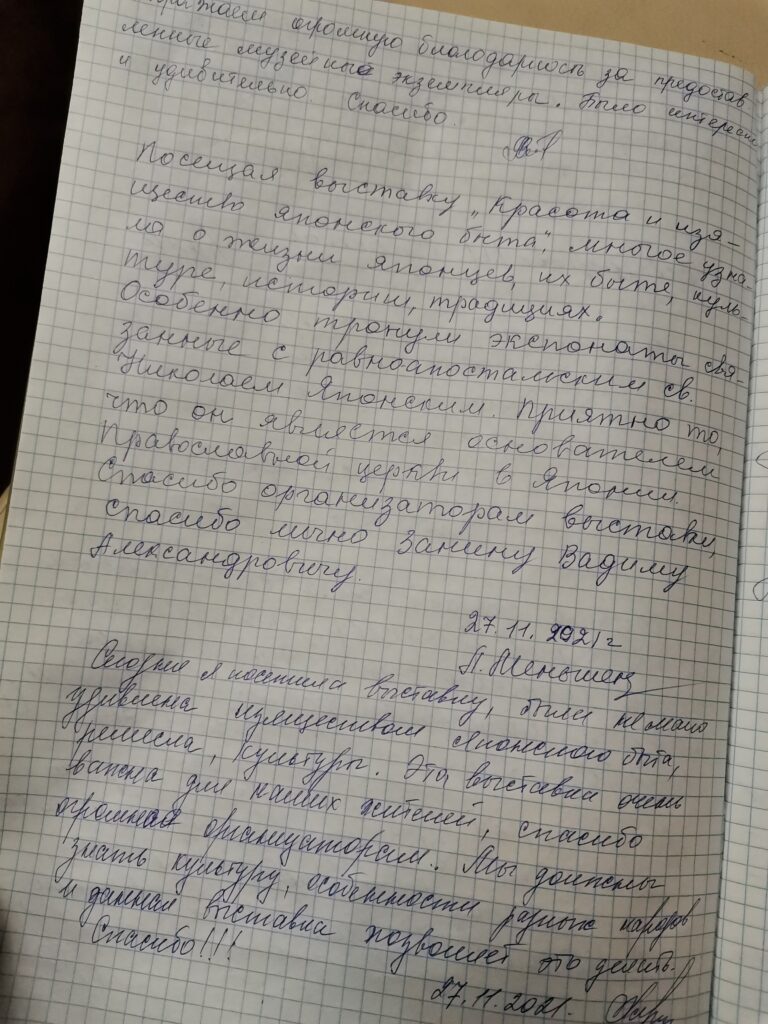 выражаем огромную благодарность за предостав
ленные музейные экземпляры. Было интересно
и удивительно. Спасибо.
Посещая выставку „Красота и изя-
щество японского быта", многое узна-
ла о жизни японцев, их быте, куль-
туре, истории, традициях.
Особенно тронули экспонаты свя-
занные с равноапостальским св.
Николаем Японским. Приятно то,
что он является основателем
Православной церкви в Японии.
Спасибо организаторам выставки,
спасибо лично Занину Вадиму
Александровичу.
27.11.2021г
Сегодня я посетила выставку, была не мало
удивлена изяществом Японского быта,
ремесла, культуры. Эта выставка очень
важна для наших жителей, спасибо
огромное организаторам. Мы должны
знать культуру, особенности разных народов
и данная выставка позволяет это делать.
Спасибо!!!
27.11.2021.